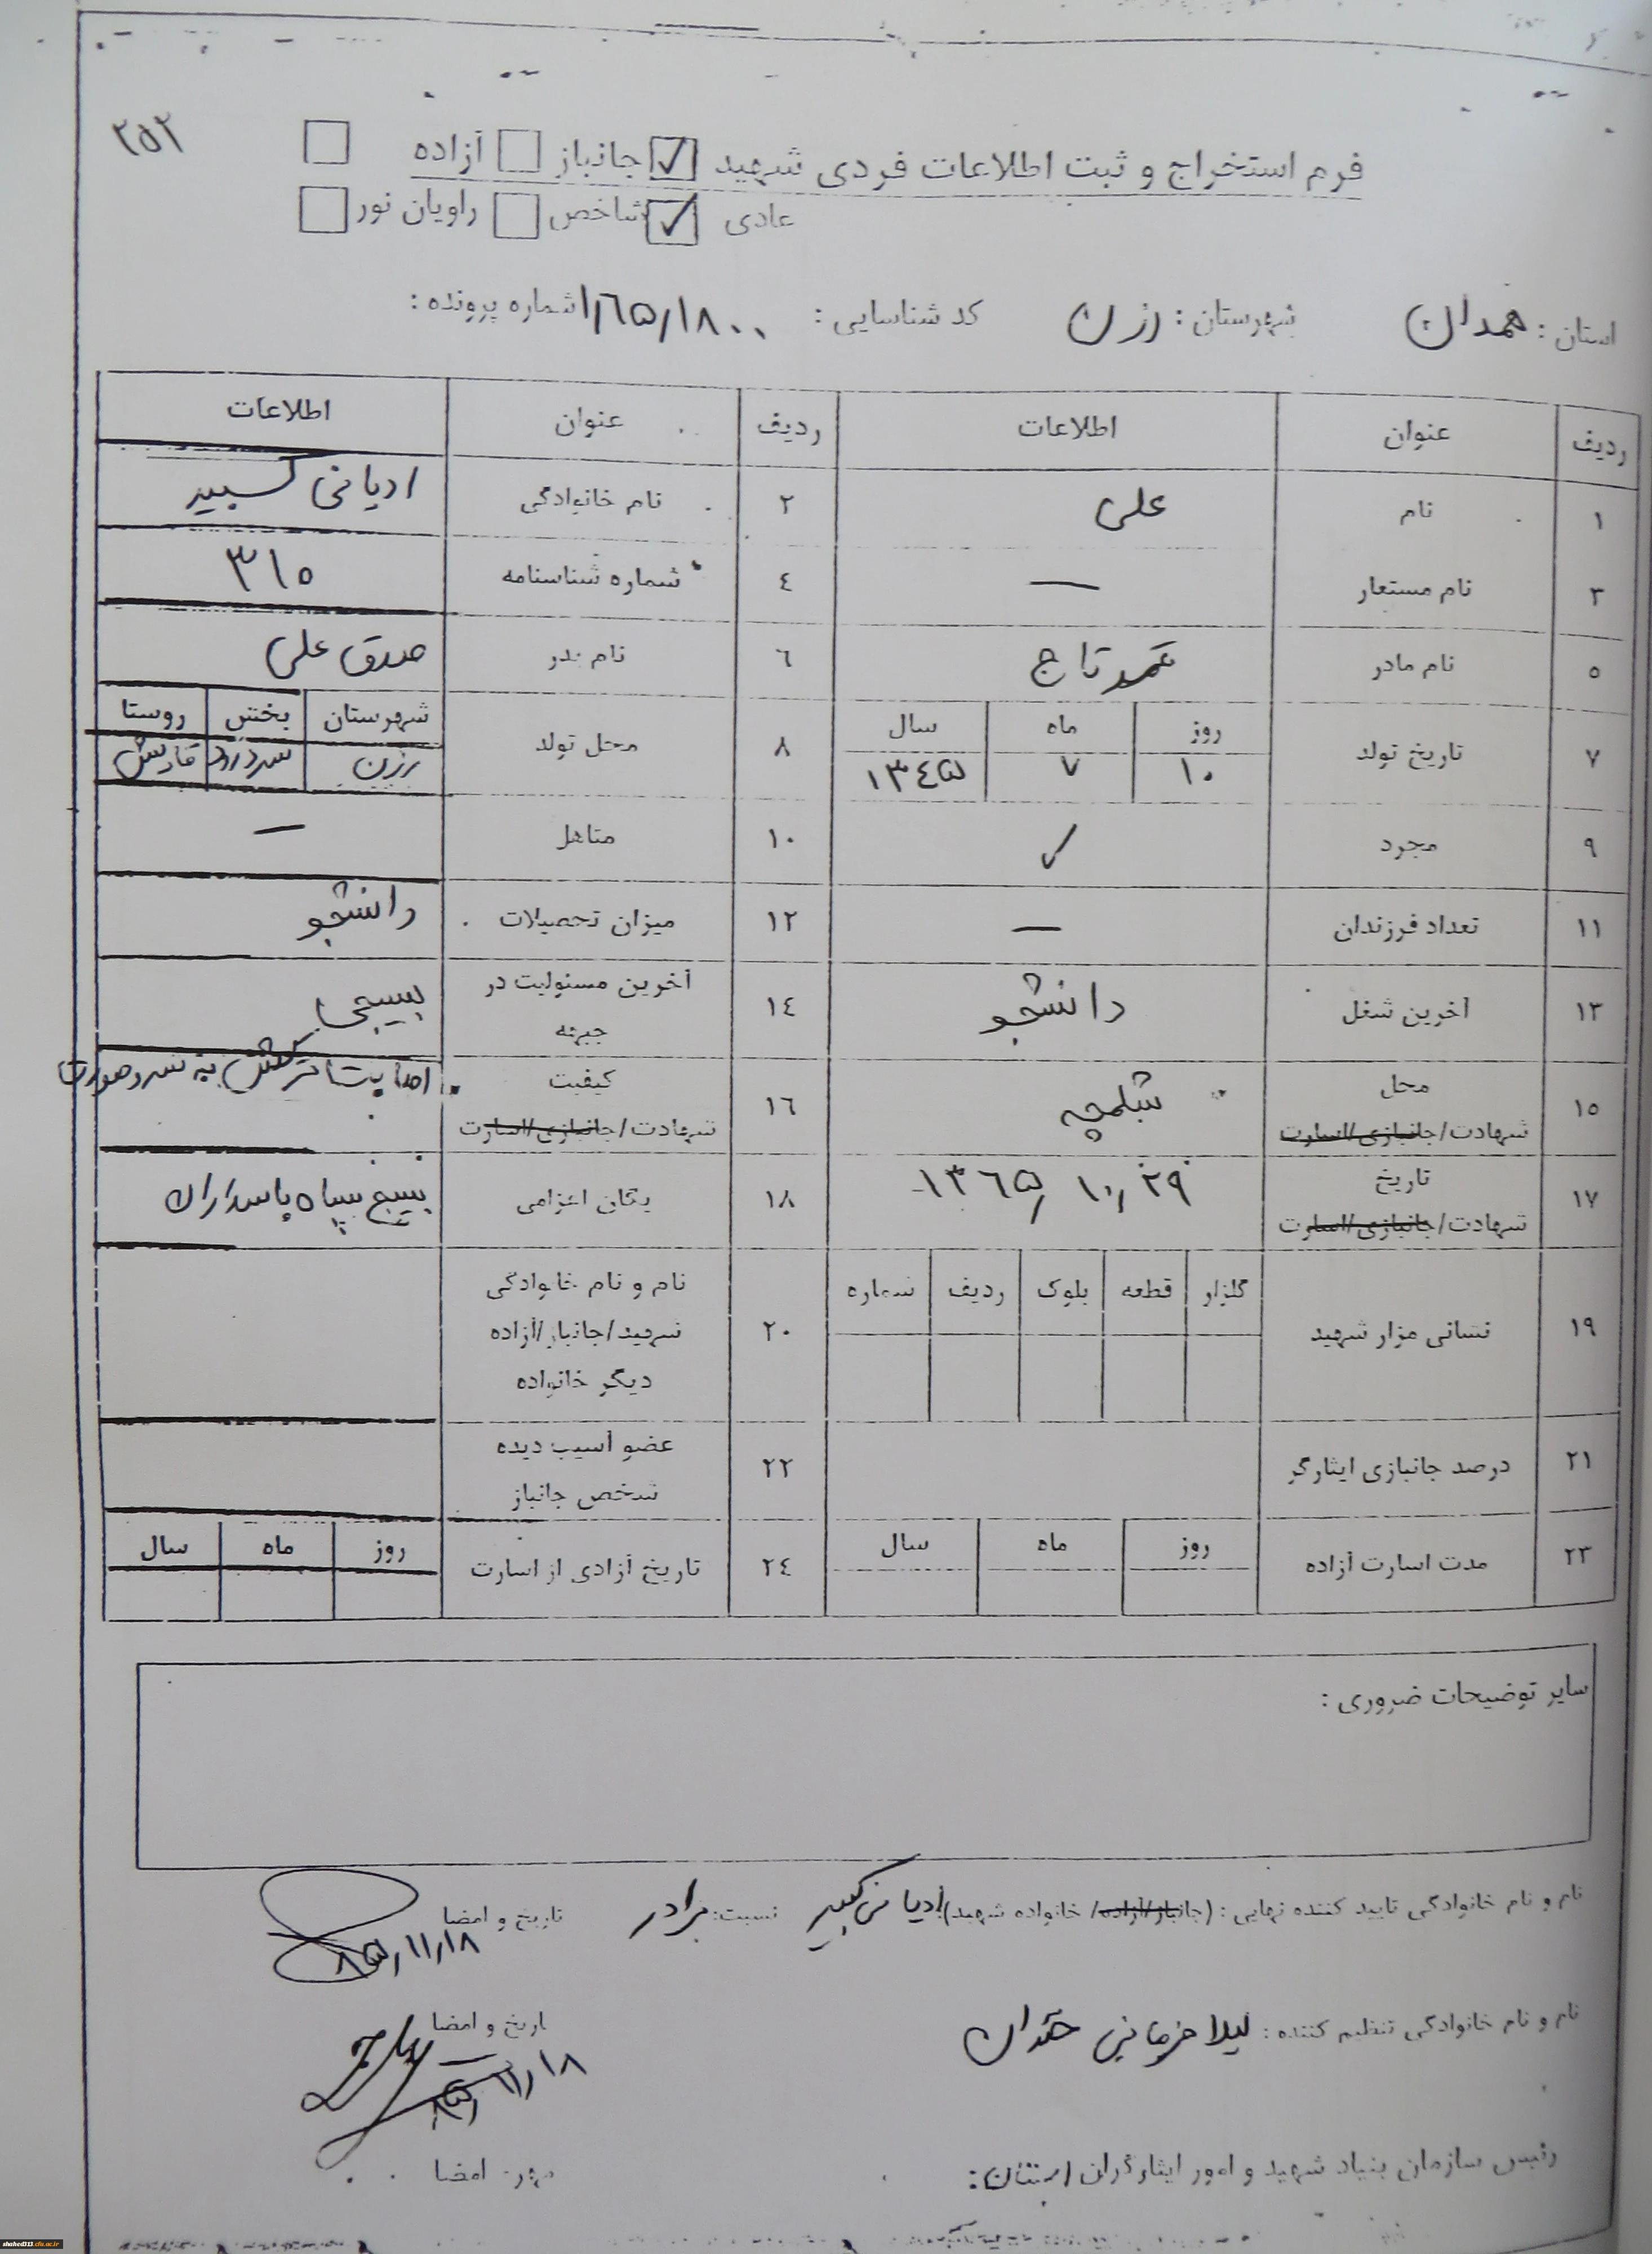 ۲۵۲
فرم استخراج و ثبت اطلاعات فردی شهید ☑ جانباز ☐ آزاده ☐
عادی ☑ شاخص ☐ راویان نور ☐
استان : همدان شهرستان : رزن کد شناسایی : ۱٫۶۵٫۱۸۰۰ شماره پرونده :
ردیف عنوان اطلاعات ردیف عنوان اطلاعات
۱ نام علی ۲ نام خانوادگی ادیانی کبیر
۳ نام مستعار — ٤ شماره شناسنامه ۳۱۵
۵ نام مادر تاج ٦ نام پدر صدق علی
۷ تاریخ تولد روز ماه سال ۸ محل تولد شهرستان بخش روستا
۱۰ ۷ ۱۳٤۵ رزن سردرود
۹ مجرد ✓ ۱۰ متاهل —
۱۱ تعداد فرزندان — ۱۲ میزان تحصیلات دانشجو
۱۳ آخرین شغل دانشجو ۱٤ آخرین مسئولیت در جبهه بسیجی
۱۵ محل شهادت/جانبازی/اسارت شلمچه ۱٦ کیفیت شهادت/جانبازی/اسارت اصابت ترکش به سر و صورت
۱۷ تاریخ شهادت/جانبازی/اسارت ۱۳٦۵٫۱۰٫۲۹ ۱۸ یگان اعزامی بسیج سپاه پاسداران
۱۹ نشانی مزار شهید گلزار قطعه بلوک ردیف شماره ۲۰ نام و نام خانوادگی شهید/جانباز/آزاده دیگر خانواده
۲۱ درصد جانبازی ایثارگر ۲۲ عضو آسیب دیده شخص جانباز
۲۳ مدت اسارت آزاده روز ماه سال ۲٤ تاریخ آزادی از اسارت روز ماه سال
سایر توضیحات ضروری :
نام و نام خانوادگی تایید کننده نهایی : (جانباز/آزاده/ خانواده شهید) ادیانی کبیر نسبت: برادر تاریخ و امضا
۸۵٫۱۱٫۱۸
نام و نام خانوادگی تنظیم کننده : لیلا تاریخ و امضا
۸۵٫۱۱٫۱۸
رئیس سازمان بنیاد شهید و امور ایثارگران استان: مهر امضا
shahed313.cfu.ac.ir